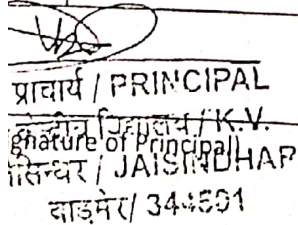 प्राचार्य / PRINCIPAL
केन्द्रीय विद्यालय / K.V.
gnature of Principal
जसिन्धर / JAISINDHAR
बाड़मेर/ 344501